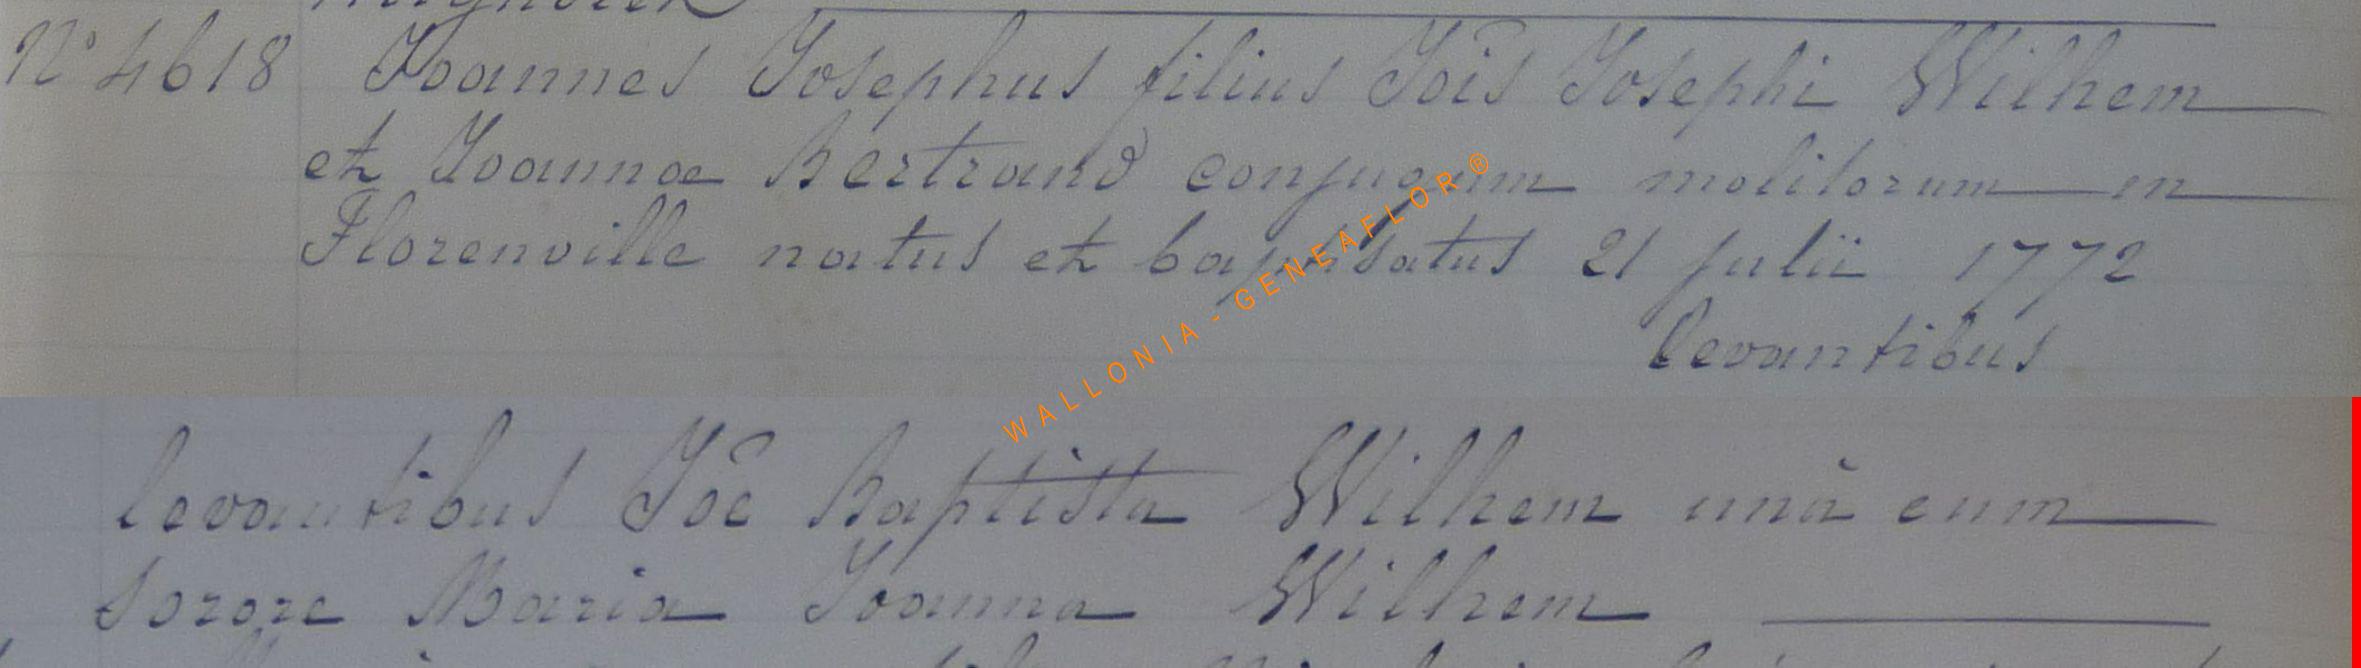 N° 4618 Joannes Josephus filius Jois Josephi Wilhem
et Joannae Bertrand conjugum molitorum in
Florenville natus et baptisatus 21 julii 1772
levantibus
levantibus Joe Baptista Wilhem unâ cum
sorore Maria Joanna Wilhem
WALLONIA - GENEAFLOR®